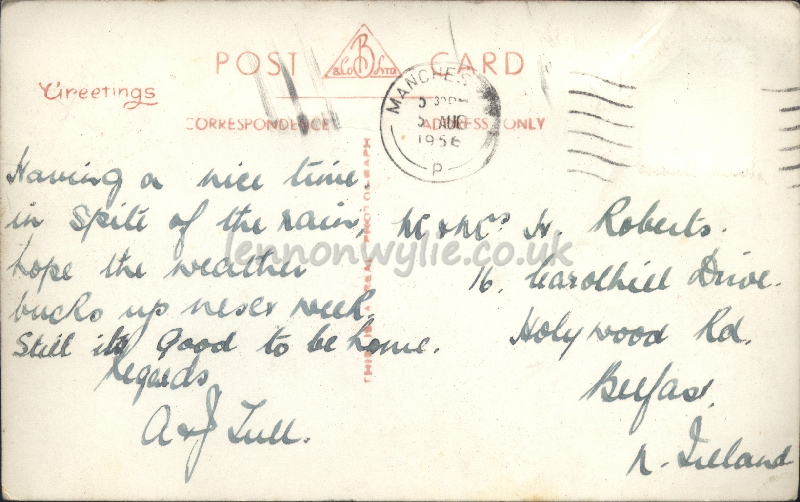 POST CARD
B
& Co LTD
Greetings
CORRESPONDENCE
ADDRESS ONLY
MANCHES
5 AUG
1956
P
THIS IS A REAL PHOTOGRAPH
Having a nice time
in Spite of the rain,
hope the weather
bucks up nesec week.
Still its Good to be home.
Regards
A & J Tull.
Mr & Mrs H. Roberts.
16, Carolhill Drive.
Holywood Rd.
Belfast.
N. Ireland
lennonwylie.co.uk